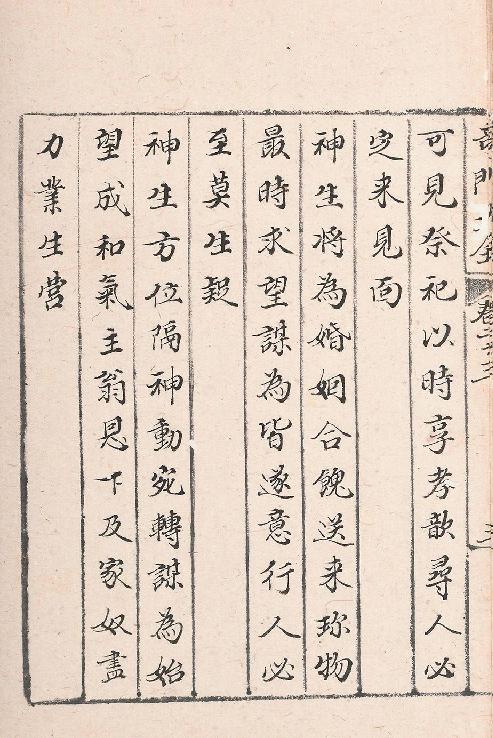 可見祭祀以時享孝歆尋人必
定来見面
神生将為婚姻合餽送来珎物
最時求望謀為皆遂意行人必
至莫生疑
神生方位隔神動宛轉謀為始
望成和氣主翁恩下及家奴盡
力業生営